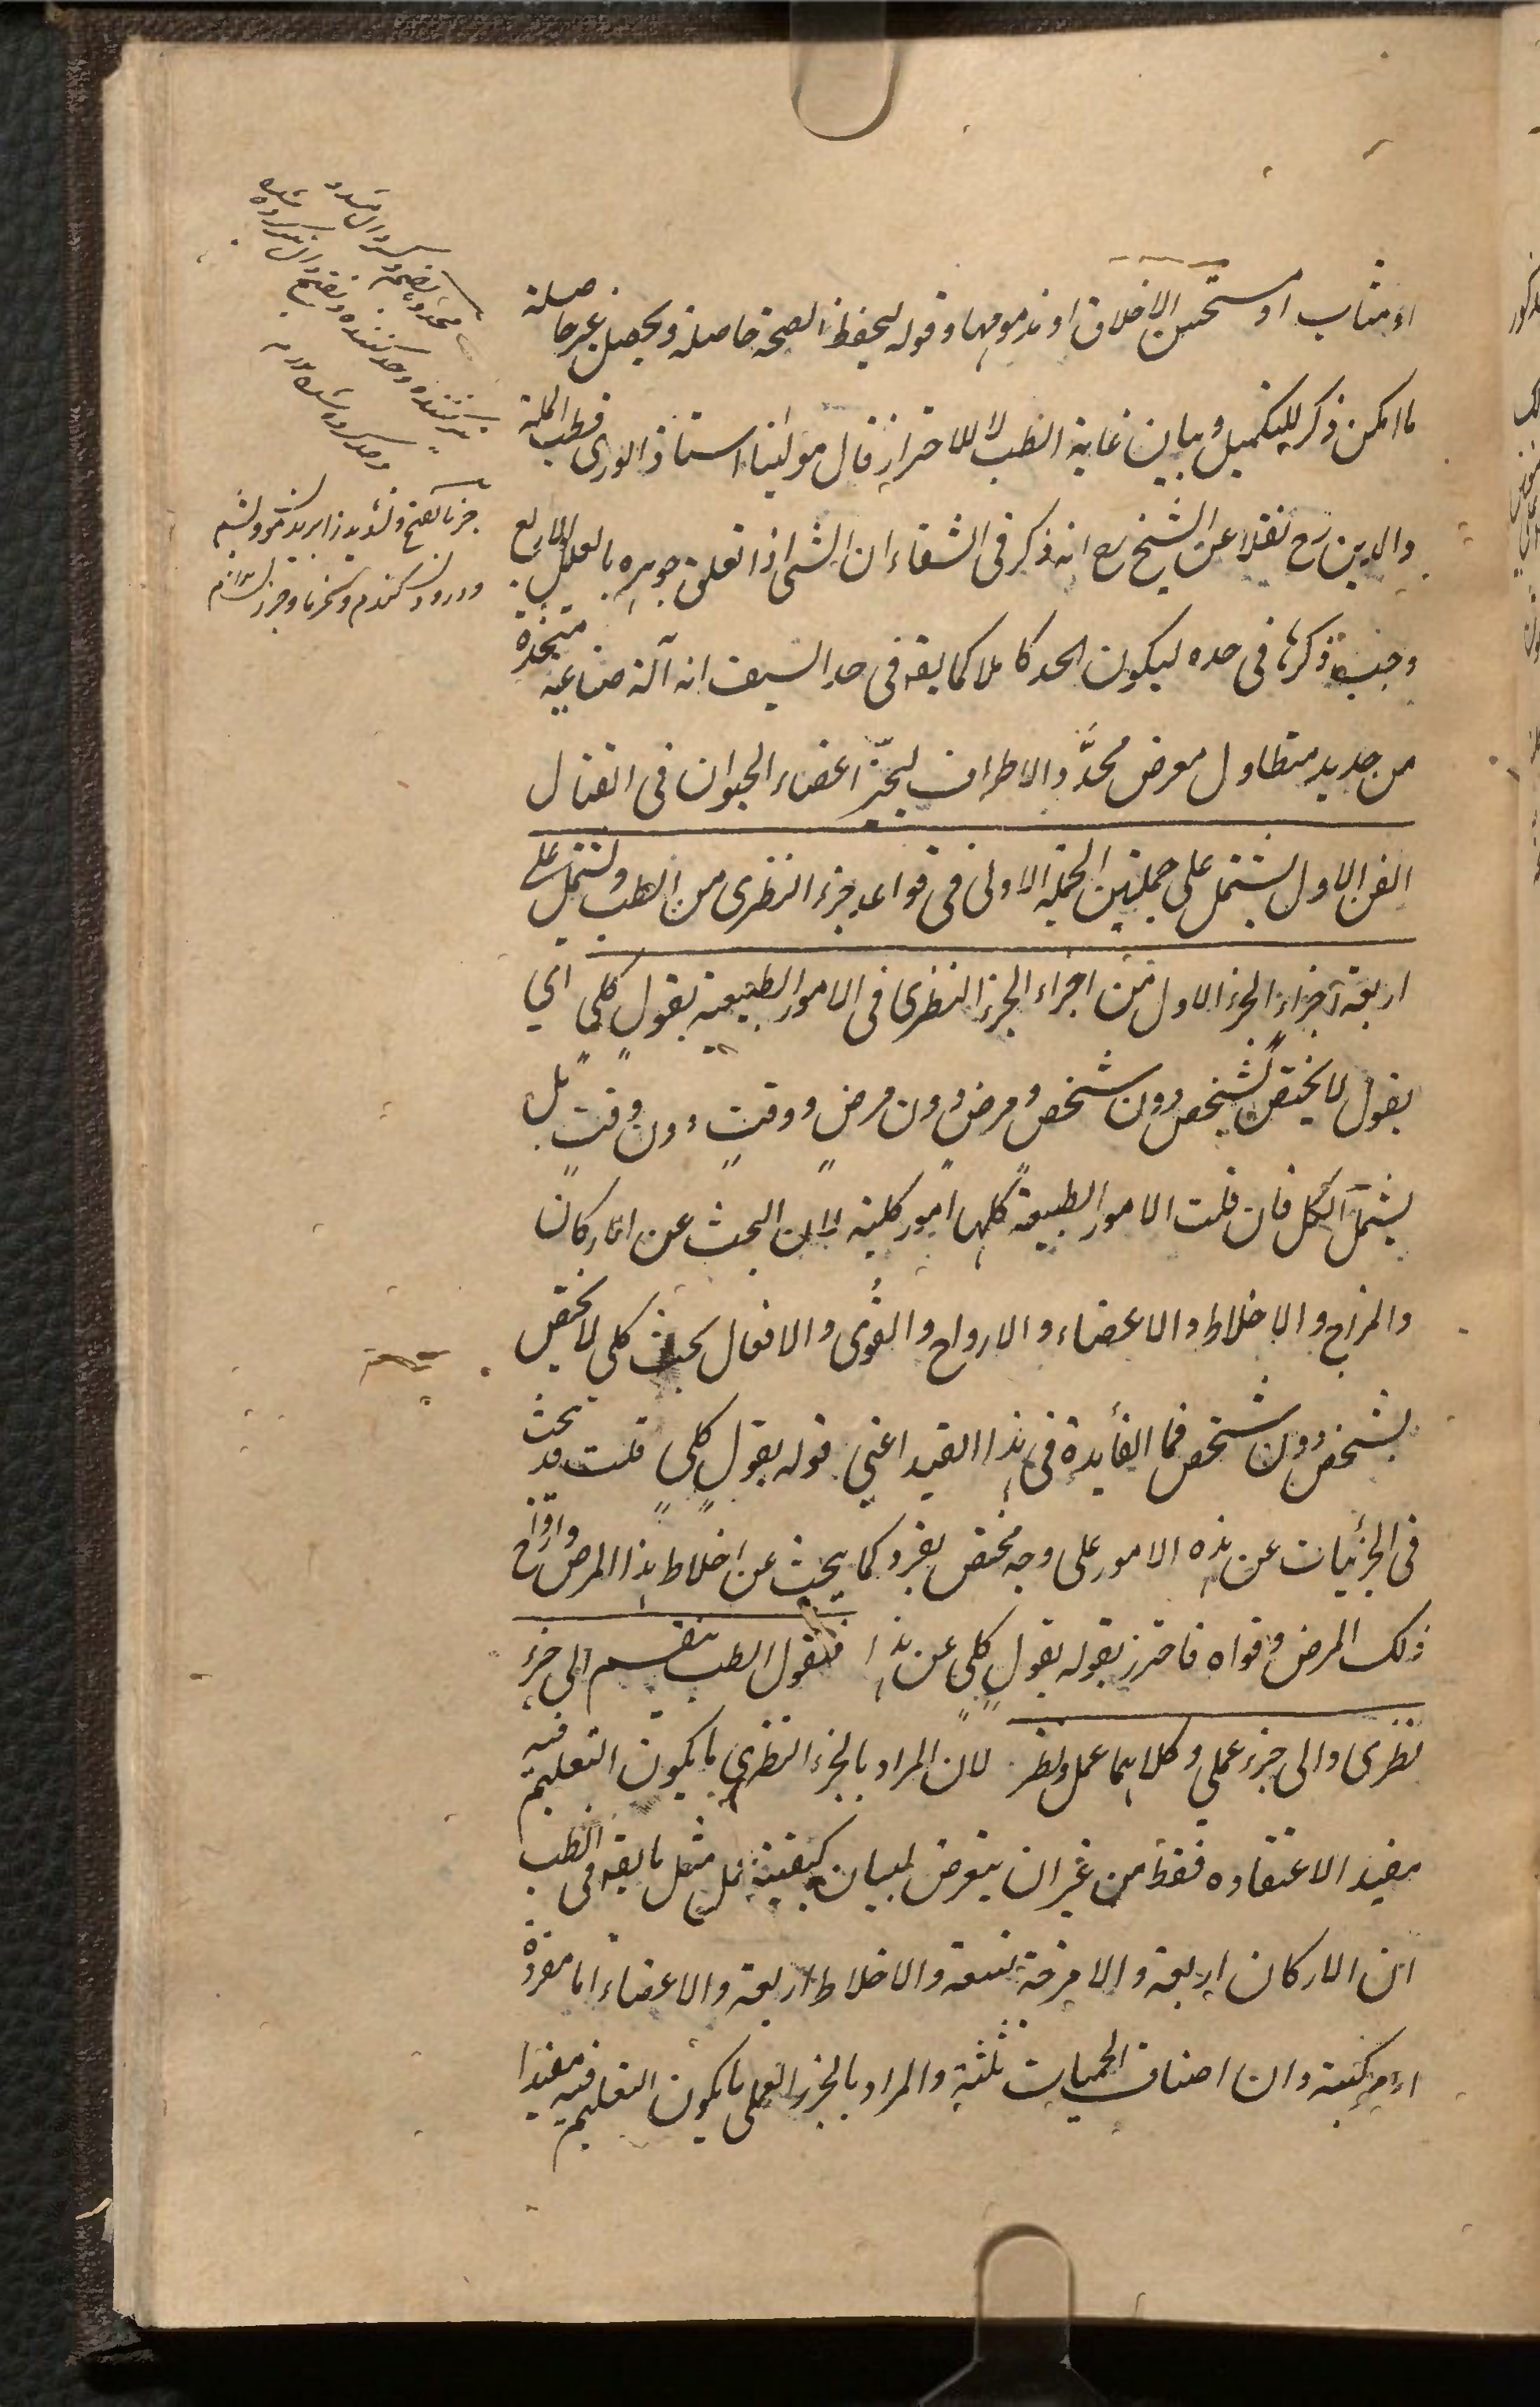 او مثاب او مستحسن الاخلاق او مذمومها وقوله ليحفظ الصحة حاصلة ويحصل غير حاصلة
ما امكن ذكر للتكميل وبيان غاية الطب لا للاحتراز قال مولينا استاذ الورى قطب الملة
والدين رح نقلا عن الشيخ رح انه ذكر فى الشفاء ان الشئ اذا تعلق جوهره بالعلل الاربع
وجب ذكرها فى حده ليكون الحد كاملا كما يقه فى حد السيف انه آلة صناعية متخذة
من حديد متطاول معرض محدَّد الاطراف ليحزّ اعضاء الحيوان فى القتال
الفن الاول يشتمل على جملتين الجملة الاولى فى قواعد جزء النظرى من الطب ويشتمل على
اربعة اجزاء الجزء الاول من اجزاء الجزء النظرى فى الامور الطبيعية بقول كلى اى
بقول لا يختص بشخص دون شخص ومرض دون مرض ووقت دون وقت بل
يشتمل الكل فان قلت الامور الطبيعية كلها امور كلية لان البحث عن الاركان
والمزاج والاخلاط والاعضاء والارواح والقُوى والافعال بحث كلى لا يختص
بشخص دون شخص فما الفائدة فى هذا القيد اعنى قوله بقول كلى قلت قد يبحث
فى الجزئيات عن هذه الامور على وجه مختص بفرد كما يبحث عن اخلاط هذا المرض وارواح
ذلك المرض وقواه فاحترز بقوله بقول كلى عن هذا فنقول الطب ينقسم الى جزء
نظرى والى جزء عملى وكلاهما عمل ونظر لان المراد بالجزء النظرى ما يكون التعليم فيه
مفيد الاعتقاده فقط من غير ان يتعرض لبيان كيفية عمل مثل ما يقه فى الطب
ان الاركان اربعة والامزجة تسعة والاخلاط اربعة والاعضاء اما مفردة
او مركبة وان اصناف الحميات ثلثة والمراد بالجزء العملى ما يكون التعليم فيه مفيدا